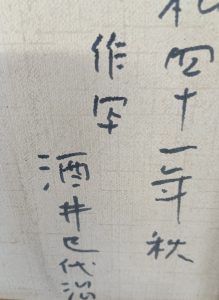 和四十一年秋
作
酒井巳代